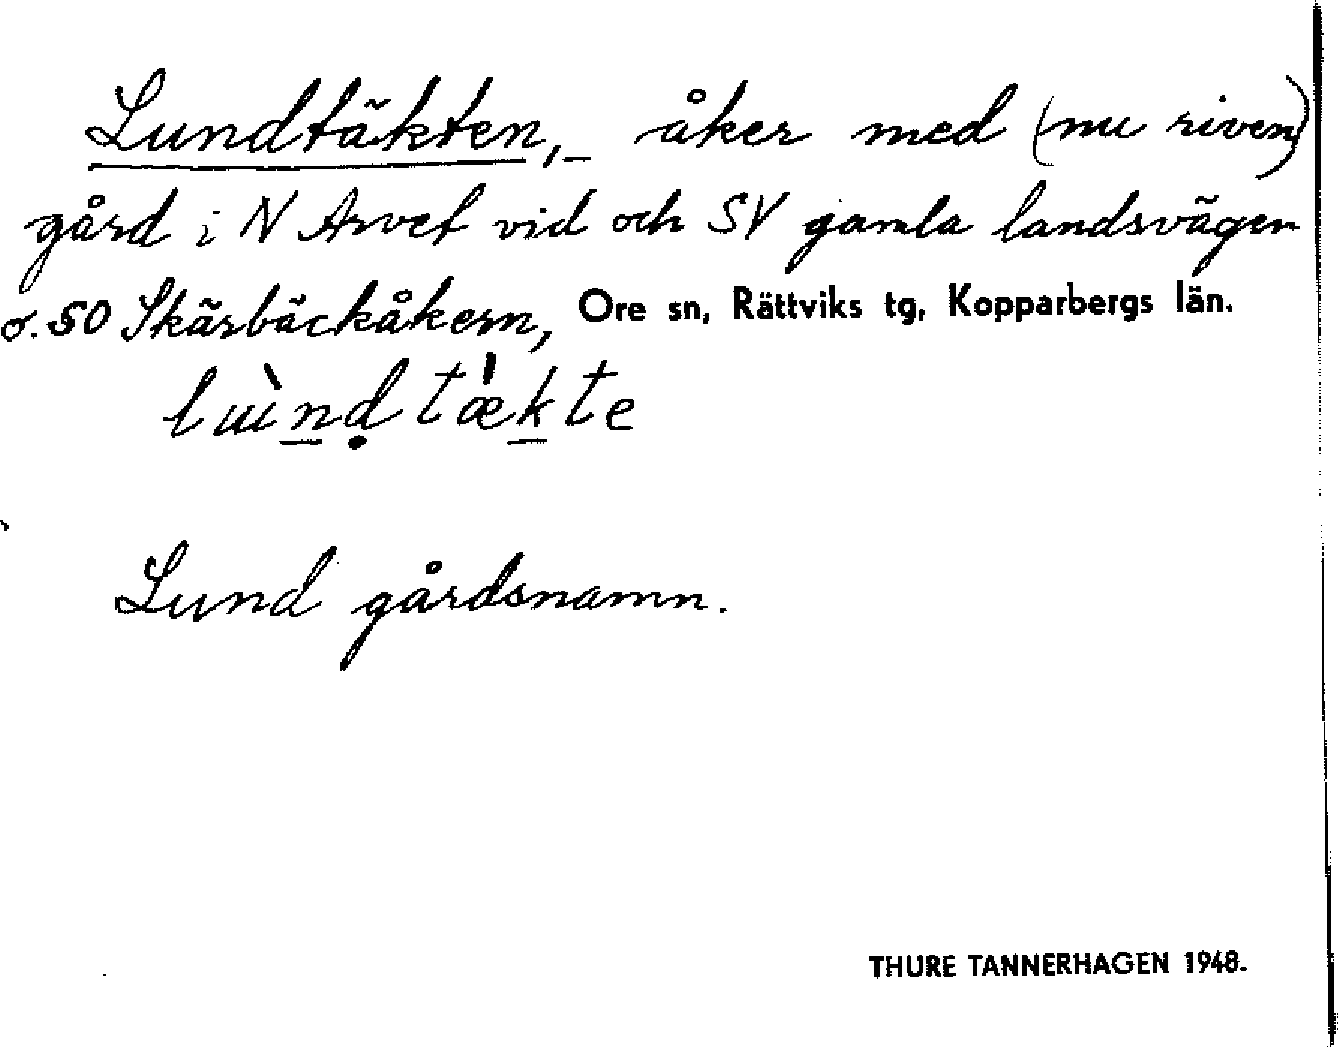 Lundtäkten, åker med (nu riven)
gård i N Arvet vid och SV gamla landsvägen
o. SO Skärbäckåkern, Ore sn, Rättviks tg, Kopparbergs län.
lɯ̀nḍtæ̀kte
Lund gårdsnamn.
THURE TANNERHAGEN 1948.